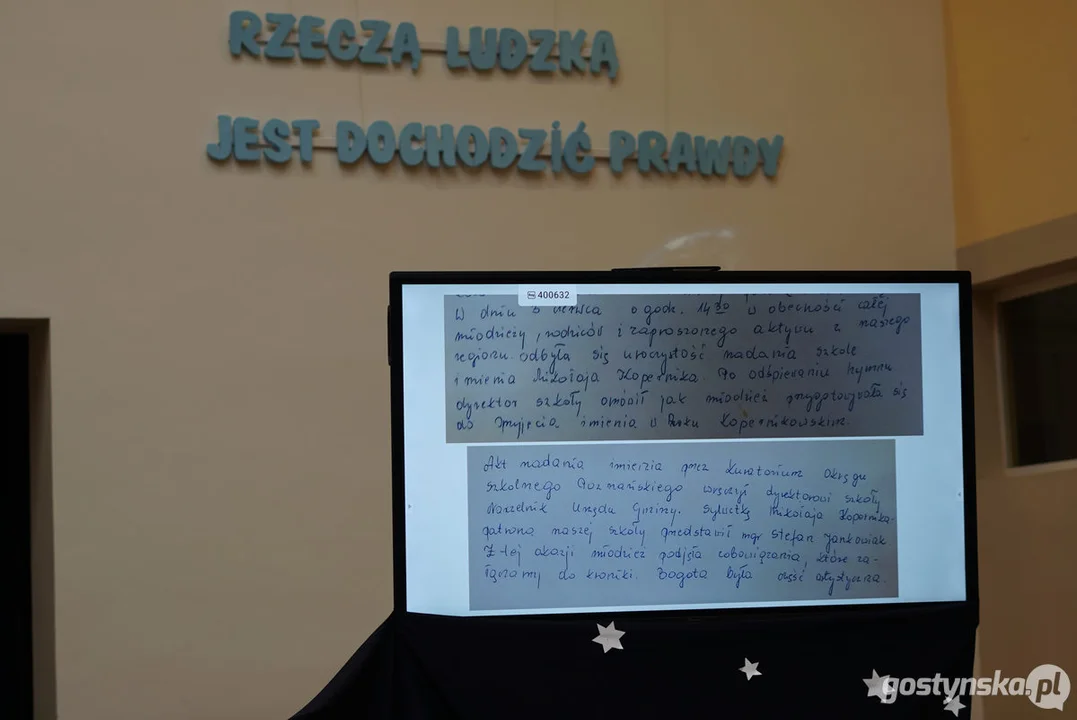 RZECZĄ LUDZKĄ
JEST DOCHODZIĆ PRAWDY
400632
W dniu 3 czerwca o godz. 14 30 w obecności całej
młodzieży, rodziców i zaproszonego aktywu z naszego
regionu odbyła się uroczystość nadania szkole
imienia Mikołaja Kopernika. Po odśpiewaniu hymnu
dyrektor szkoły omówił jak młodzież przygotowywała się
do przyjęcia imienia w Roku Kopernikowskim.
Akt nadania imienia przez Kuratorium Okręgu
szkolnego Poznańskiego wręczył dyrektorowi szkoły
Naczelnik Urzędu Gminy. Sylwetkę Mikołaja Kopernika-
patrona naszej szkoły przedstawił mgr Stefan Jankowiak
Z tej okazji młodzież podjęła zobowiązania, które za-
łączamy do kroniki. Bogata była część artystyczna.
gostynska.pl